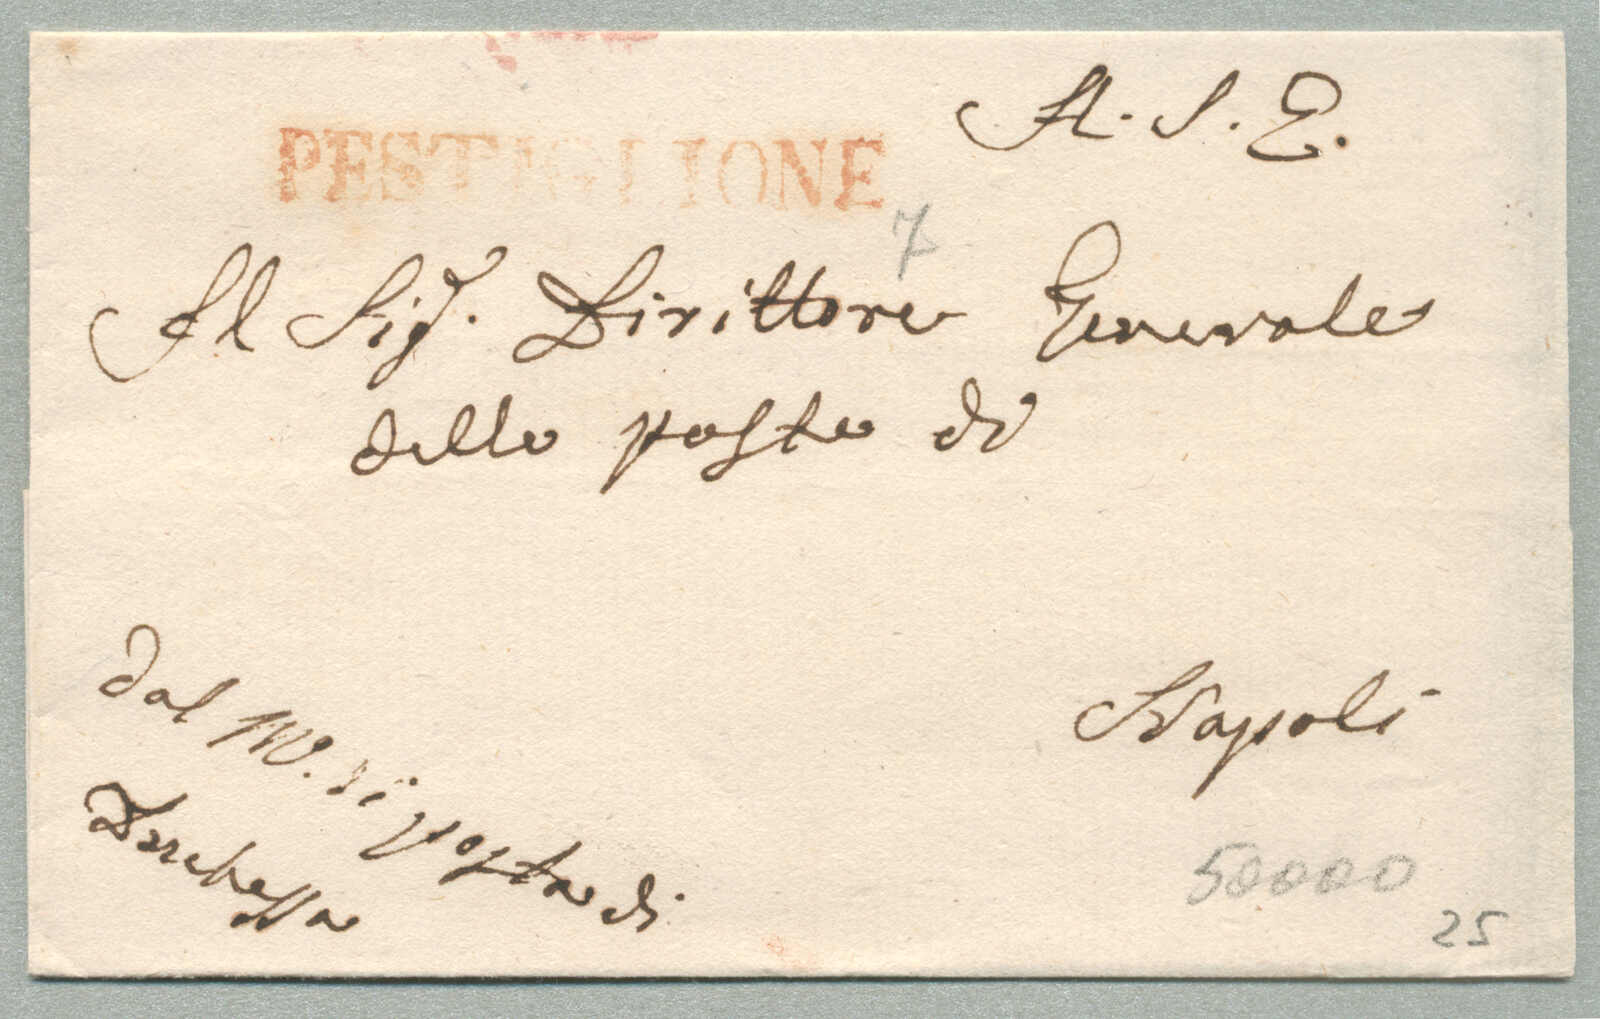 PESTIGLIONE
A. S. E.
7
Al Sig.r Dirittore Generale
delle poste di
Napoli
dal M. di posta di
50000
25